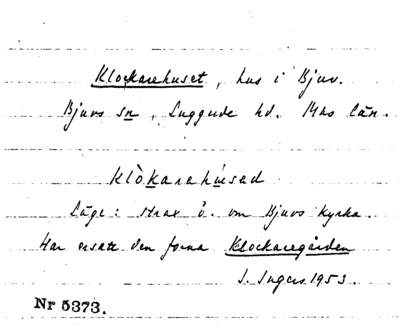 Klockarehuset, hus i Bjuv.
Bjuvs sn, Luggude hd. Mhs län.
Klòkarehúsed
Läge: strax ö. om Bjuvs kyrka.
Har ersatt den forna Klockaregården
I. Ingers 1953.
Nr 5373.